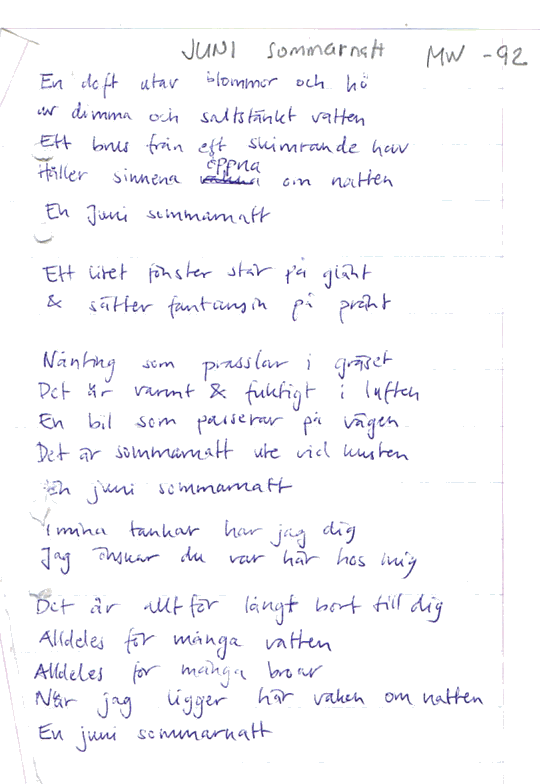 JUNI sommarnatt MW -92
En doft utav blommor och hö
av dimma och saltstänkt vatten
Ett brus från ett skimrande hav
Håller sinnena öppna om natten
En Juni sommarnatt
Ett litet fönster står på glänt
& sätter fantasin på pränt
Nånting som prasslar i gräset
Det är varmt & fuktigt i luften
En bil som passerar på vägen
Det är sommarnatt ute vid kusten
En juni sommarnatt
I mina tankar har jag dig
Jag önskar du var här hos mig
Det är allt för långt bort till dig
Alldeles för många vatten
Alldeles för många broar
När jag ligger här vaken om natten
En juni sommarnatt